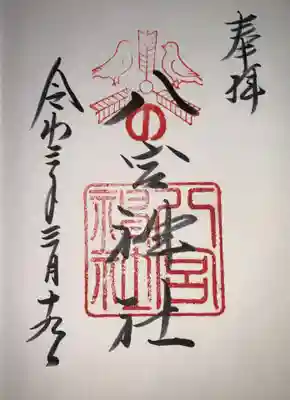 奉拝
八の宮神社
八宮
神社
令和三年三月十九日